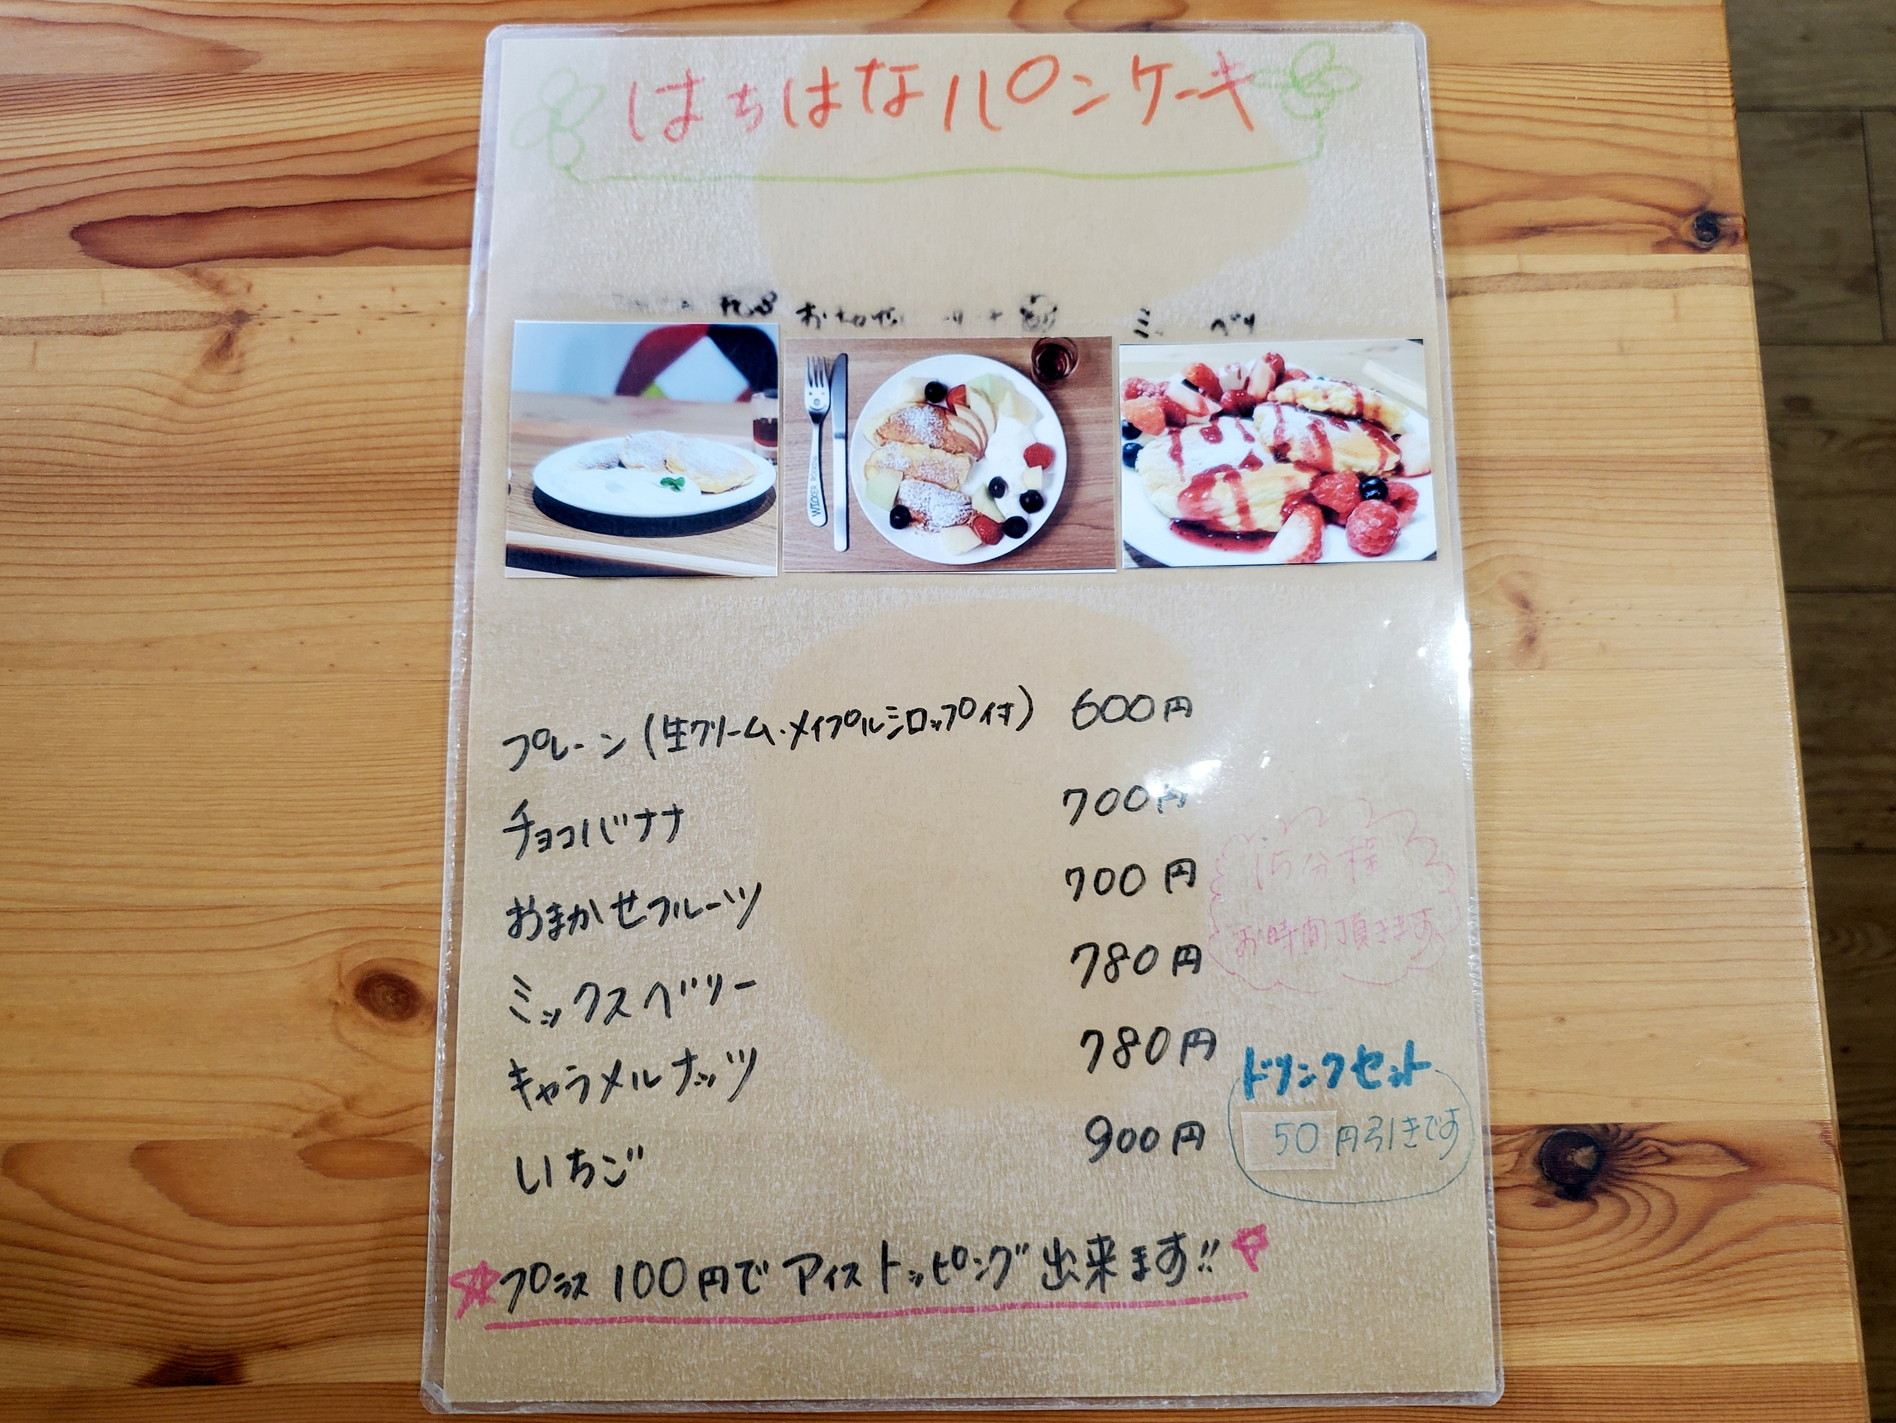 はちはなパンケーキ
プレーン(生クリーム・メイプルシロップ付) 600円
チョコバナナ 700円
おまかせフルーツ 700円
ミックスベリー 780円
キャラメルナッツ 780円
いちご 900円
15分程
お時間頂きます
ドリンクセット
50円引きです
プラス100円でアイストッピング出来ます!!